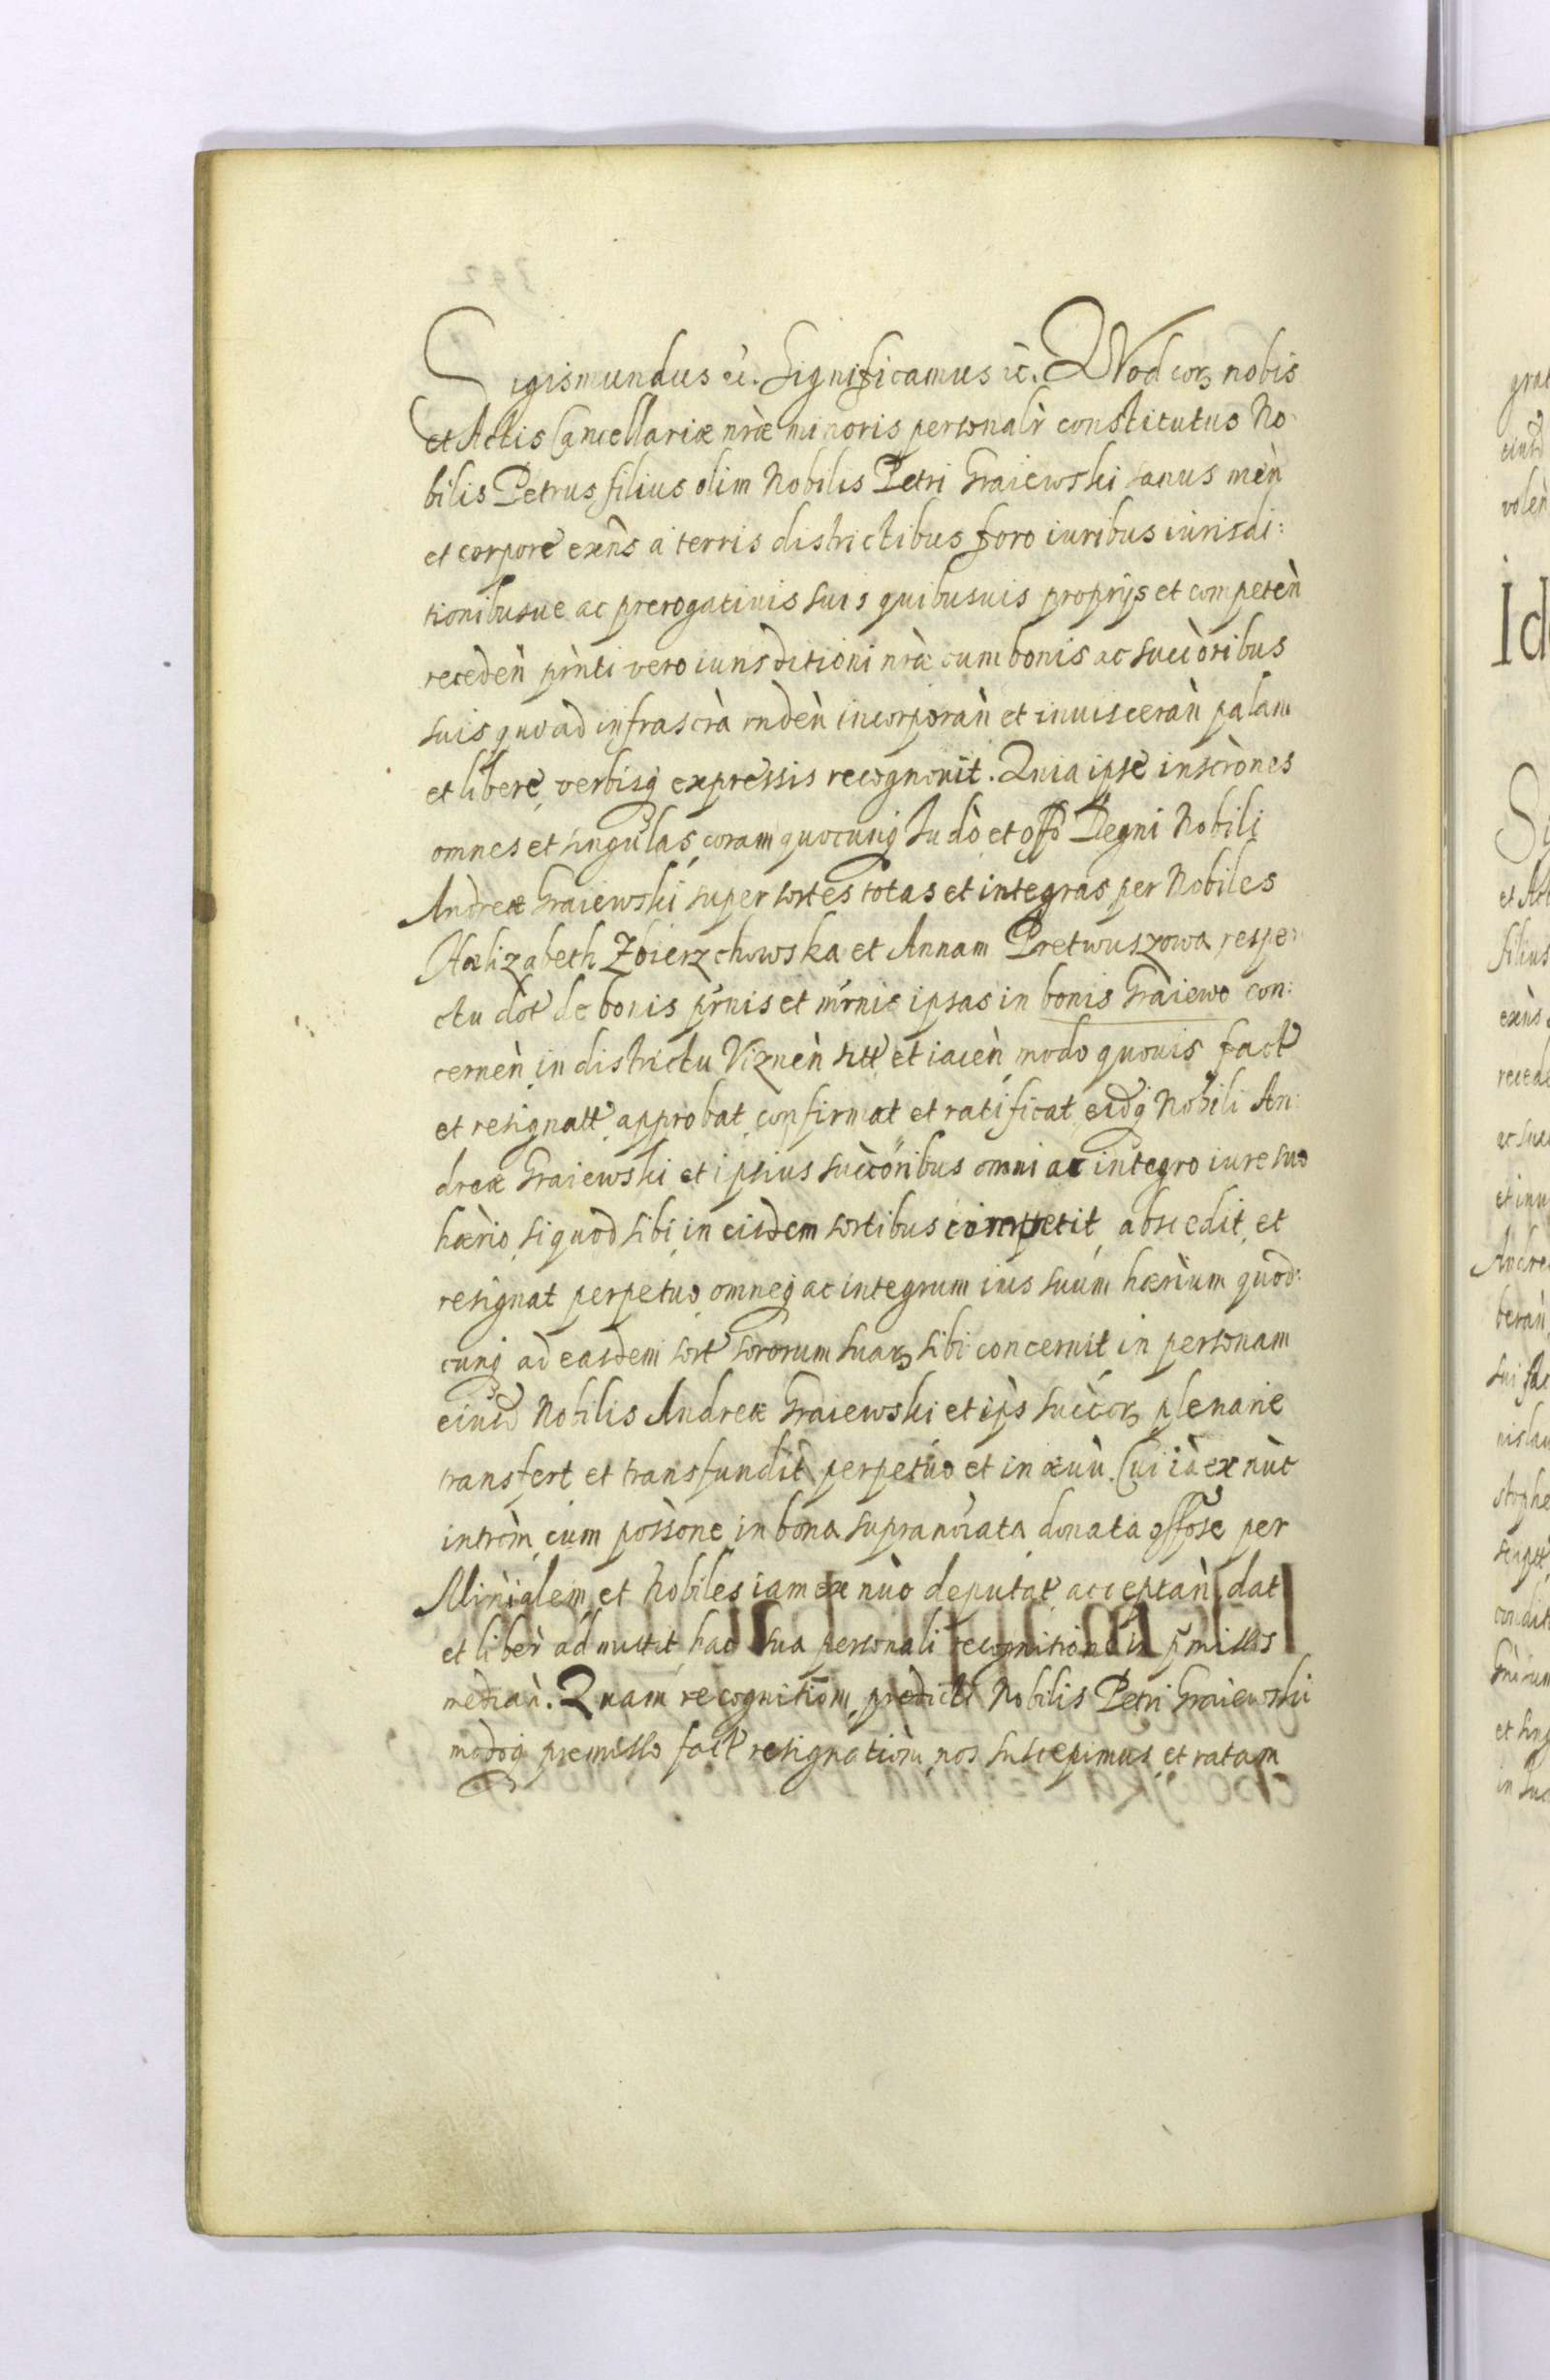 Sigismundus etc. Significamus etc. QVod corꝫ nobis
et Actis Cancellariæ nr̀æ minoris personalr̀ constitutus No-
bilis Petrus filius olim Nobilis Petri Graiewski sanus men̄
et corpore exen̄s a terris districtibus foro iuribus iurisdi:
tionibusue ac prerogatiuis suis quibusuis proprijs et competen̄
receden̄ pr̀nti vero iurisditioni nr̀æ cum bonis ac succ̀oribus
suis quoad infrascr̀a rnden̄ incorporan̄ et inuisceran̄ palam
et libere, verbisq expressis recognouit. Quia ipse inscr̀ones
omnes et singulas, coram quocunq Iudò et offò Regni Nobili
Andreæ Graiewski super sortes totas et integras per Nobiles
Hælizabeth Zbierzchowska et Annam Pretwuszowa respe:
ctu dot de bonis pr̀nis et mr̀nis ipsas in bonis Graiewo con:
cernen̄ in districtu Viznen̄ sitt et iacen̄ modo quouis fact
et resignatt, approbat, confirmat et ratificat, eidq Nobili An:
dreæ Graiewski et ipsius succ̀oribus omni ac integro iure suo
hær̀io, si quod sibi in eisdem sortibus competit, abscedit, et
resignat perpetuo, omneq ac integrum ius suum hær̀ium quod:
cunq ad easdem sort sororum suarꝫ sibi concernit in personam
eiusd Nobilis Andreæ Graiewski et ip̀s succ̀orꝫ plenarie
transfert et transfundit perpetuo et in æuū. Cui iā ex nūc
intròm, cum possòne in bona supranòiata donata offòse per
Minìalem, et Nobiles iam ex nūc deputat, acceptan̄ dat
et liber̀ admittit hac sua personali recognitione in p̄missis
median̄. Quam recognitiòm, predicti Nobilis Petri Graiewski
modoq premisso fact resignatiòm, nos suscepimus, et ratam